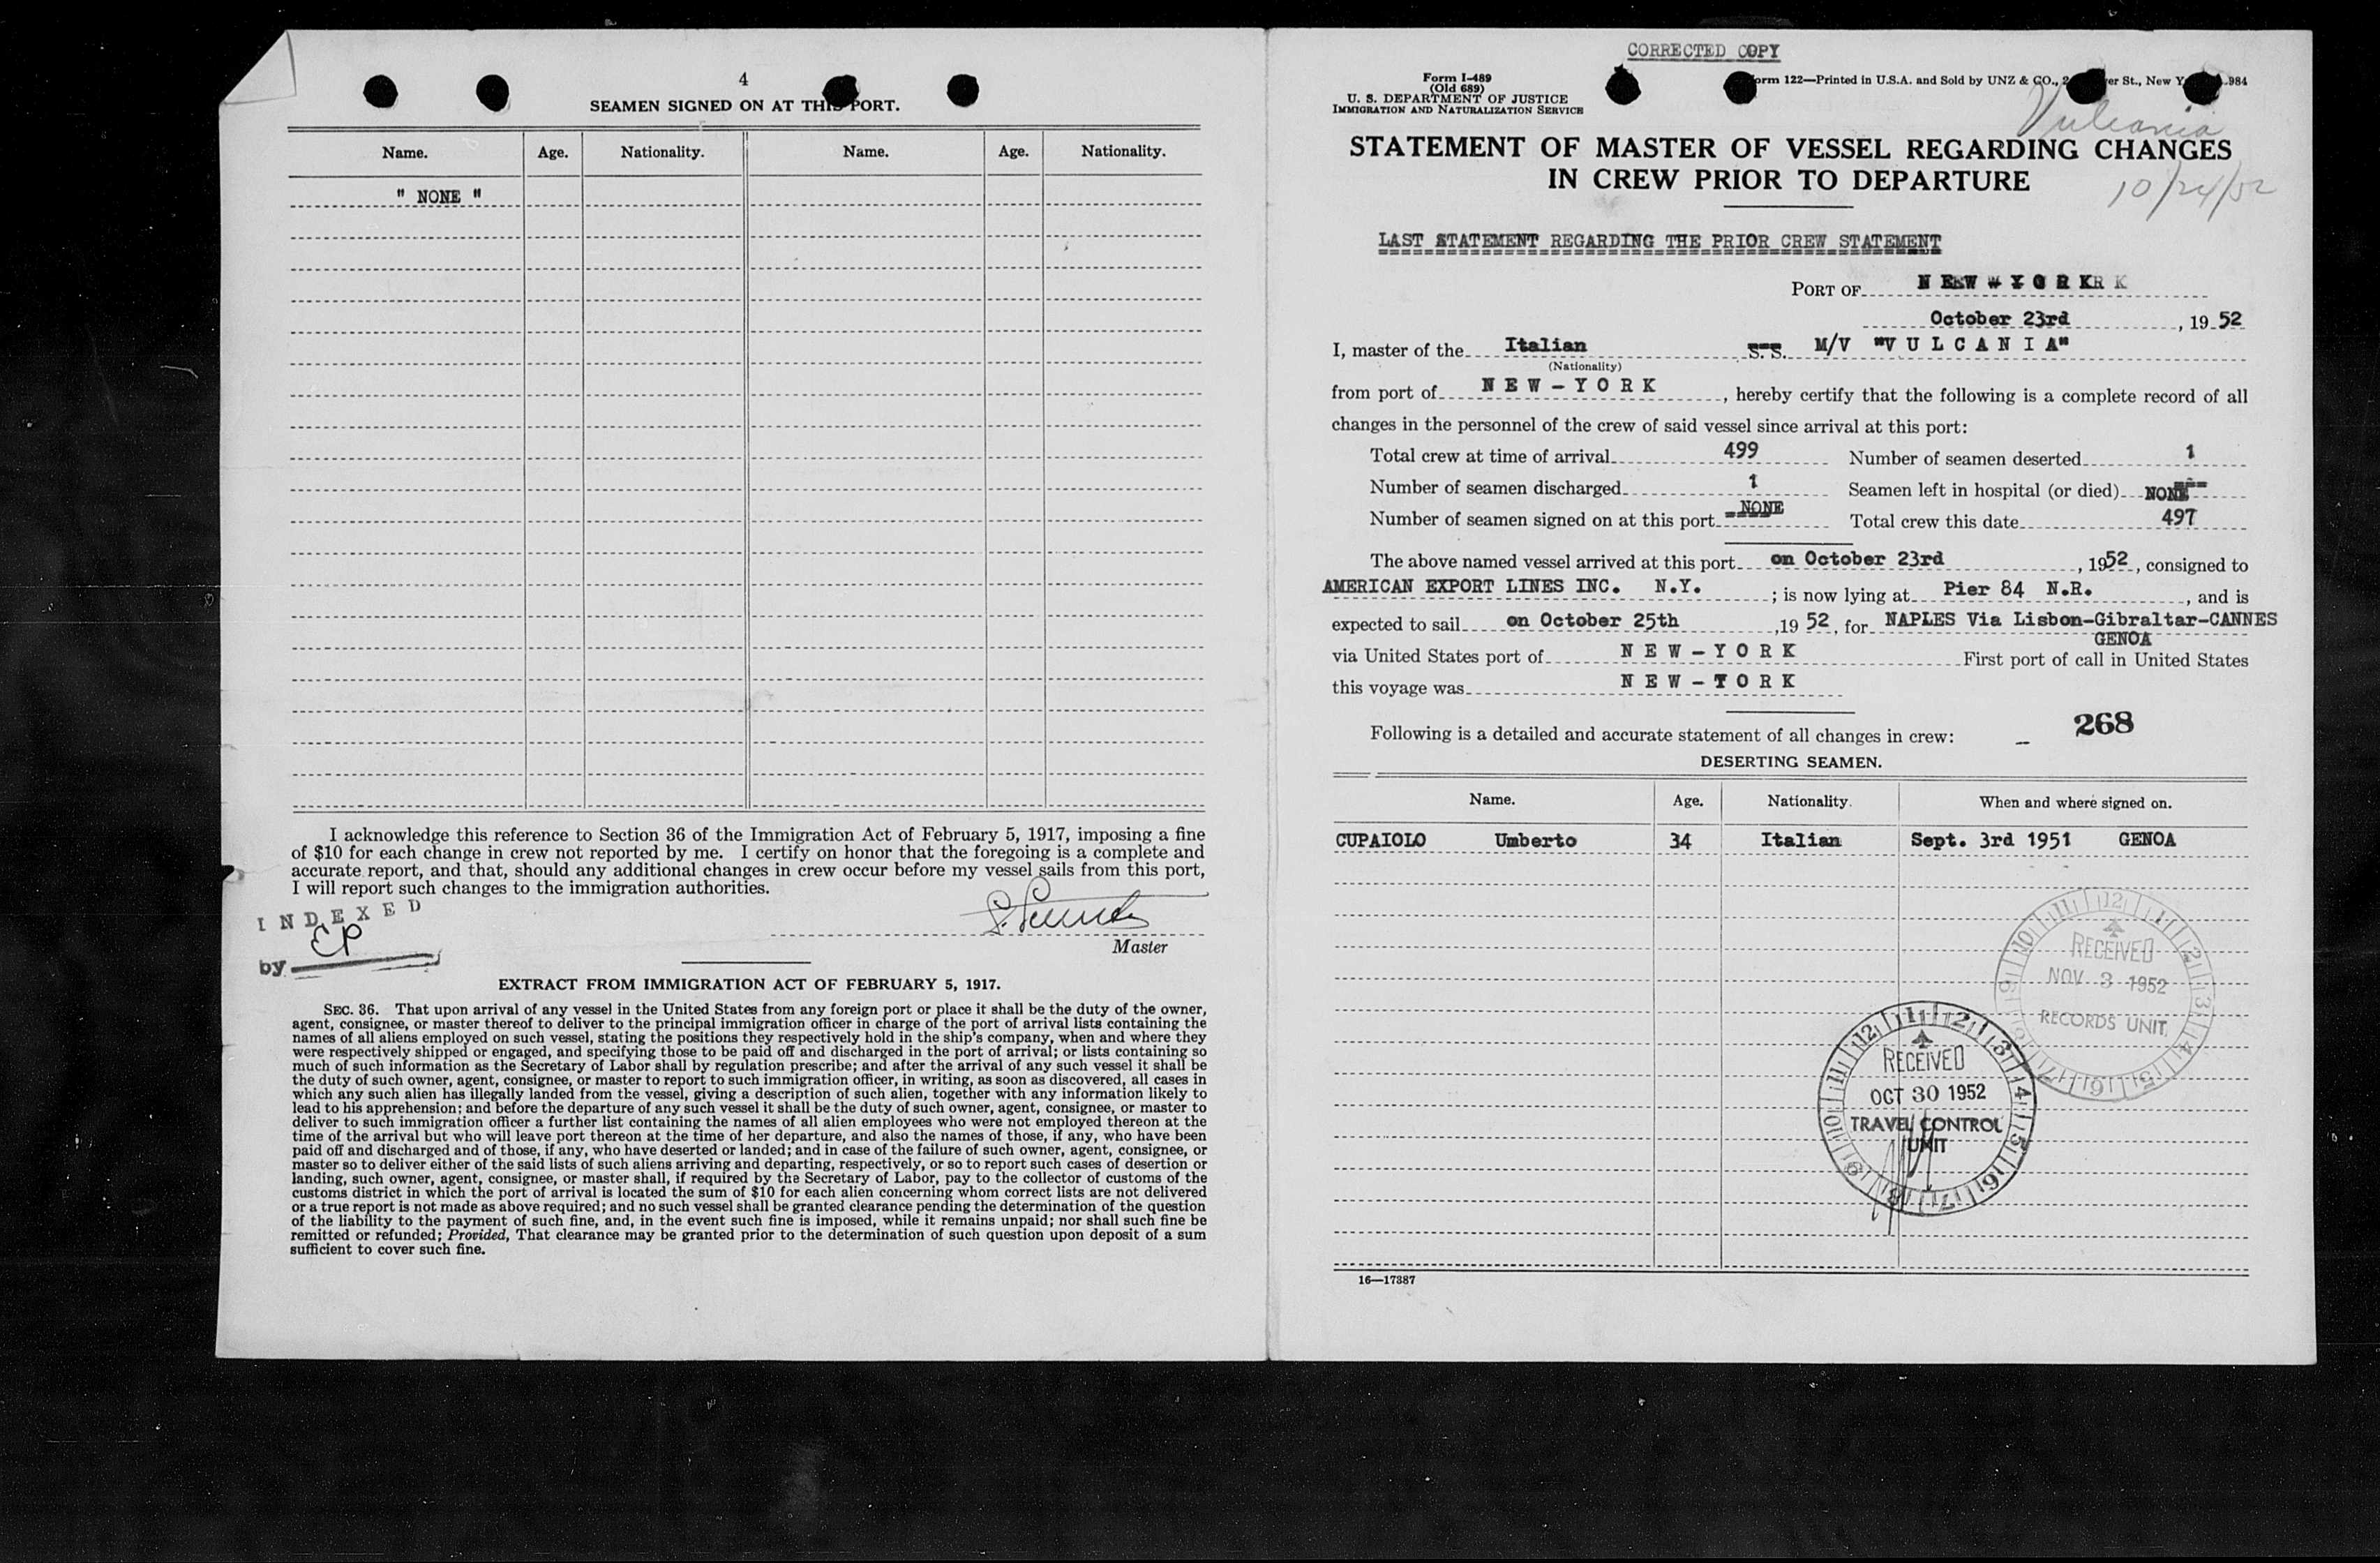 4
SEAMEN SIGNED ON AT THIS PORT.
Name. Age. Nationality. Name. Age. Nationality.
" NONE "
I acknowledge this reference to Section 36 of the Immigration Act of February 5, 1917, imposing a fine
of $10 for each change in crew not reported by me. I certify on honor that the foregoing is a complete and
accurate report, and that, should any additional changes in crew occur before my vessel sails from this port,
I will report such changes to the immigration authorities.
INDEXED
by EP
Master
EXTRACT FROM IMMIGRATION ACT OF FEBRUARY 5, 1917.
SEC. 36. That upon arrival of any vessel in the United States from any foreign port or place it shall be the duty of the owner,
agent, consignee, or master thereof to deliver to the principal immigration officer in charge of the port of arrival lists containing the
names of all aliens employed on such vessel, stating the positions they respectively hold in the ship's company, when and where they
were respectively shipped or engaged, and specifying those to be paid off and discharged in the port of arrival; or lists containing so
much of such information as the Secretary of Labor shall by regulation prescribe; and after the arrival of any such vessel it shall be
the duty of such owner, agent, consignee, or master to report to such immigration officer, in writing, as soon as discovered, all cases in
which any such alien has illegally landed from the vessel, giving a description of such alien, together with any information likely to
lead to his apprehension; and before the departure of any such vessel it shall be the duty of such owner, agent, consignee, or master to
deliver to such immigration officer a further list containing the names of all alien employees who were not employed thereon at the
time of the arrival but who will leave port thereon at the time of her departure, and also the names of those, if any, who have been
paid off and discharged and of those, if any, who have deserted or landed; and in case of the failure of such owner, agent, consignee, or
master so to deliver either of the said lists of such aliens arriving and departing, respectively, or so to report such cases of desertion or
landing, such owner, agent, consignee, or master shall, if required by the Secretary of Labor, pay to the collector of customs of the
customs district in which the port of arrival is located the sum of $10 for each alien concerning whom correct lists are not delivered
or a true report is not made as above required; and no such vessel shall be granted clearance pending the determination of the question
of the liability to the payment of such fine, and, in the event such fine is imposed, while it remains unpaid; nor shall such fine be
remitted or refunded; Provided, That clearance may be granted prior to the determination of such question upon deposit of a sum
sufficient to cover such fine.
CORRECTED COPY
Form I-489
(Old 689)
U. S. DEPARTMENT OF JUSTICE
IMMIGRATION AND NATURALIZATION SERVICE
Form 122—Printed in U.S.A. and Sold by UNZ & CO., St., New 984
Vulcania
STATEMENT OF MASTER OF VESSEL REGARDING CHANGES
IN CREW PRIOR TO DEPARTURE
10/24/52
LAST STATEMENT REGARDING THE PRIOR CREW STATEMENT
PORT OF NEW YORK
October 23rd, 19 52
I, master of the Italian S.S. M/V "V U L C A N I A"
(Nationality)
from port of N E W - Y O R K, hereby certify that the following is a complete record of all
changes in the personnel of the crew of said vessel since arrival at this port:
Total crew at time of arrival 499 Number of seamen deserted 1
Number of seamen discharged 1 Seamen left in hospital (or died) NONE
Number of seamen signed on at this port NONE Total crew this date 497
The above named vessel arrived at this port on October 23rd, 1952, consigned to
AMERICAN EXPORT LINES INC. N.Y. ; is now lying at Pier 84 N.R., and is
expected to sail on October 25th ,19 52, for NAPLES Via Lisbon-Gibraltar-CANNES
GENOA
via United States port of N E W - Y O R K First port of call in United States
this voyage was N E W - T O R K
268
Following is a detailed and accurate statement of all changes in crew:
DESERTING SEAMEN.
Name. Age. Nationality. When and where signed on.
CUPAIOLO Umberto 34 Italian Sept. 3rd 1951 GENOA
RECEIVED
NOV 3 1952
RECORDS UNIT
RECEIVED
OCT 30 1952
TRAVEL CONTROL
UNIT
16—17387